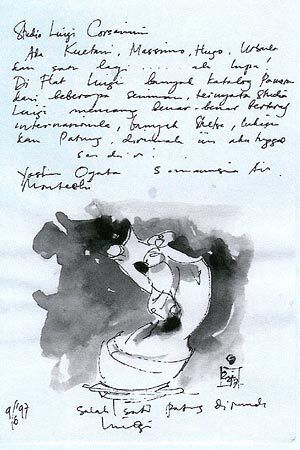 Studio Luigi Corsanini
Ada Kuetani, Massimo, Hugo, Ursula
dan satu lagi ... ah lupa!
Di Flat Luigi banyak katalog Pameran
dari beberapa seniman, ternyata Studio
Luigi memang benar-benar bertaraf
internasional, banyak Sketsa, lukisan
dan Patung, dirumah ini aku tinggal
sendiri.
Yoshin Ogata
9/'97
6
salah satu patung dirumah
Luigi